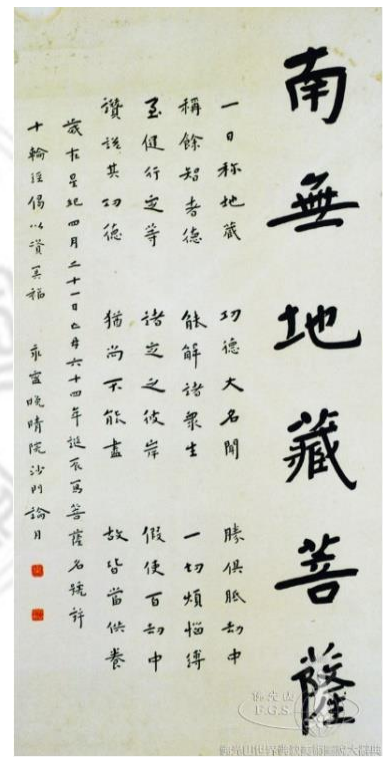 南無地藏菩薩
一日称地藏 功德大名聞 勝俱胝劫中
稱餘智者德 能解諸衆生 一切煩惱縛
至健行定等 諸定之彼岸 假使百劫中
讚説其功德 猶尚不能盡 故皆當供養
歲在星紀四月二十一日亡母六十四年誕辰寫菩薩名號并
十輪經偈以資冥福 永寧晚晴院沙門論月
佛光山
F.G.S
佛光山世界佛教美術圖説大辭典